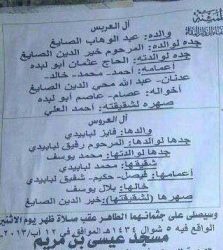 آل العريس
والده: عبد الوهاب الصايغ
جده لوالده: المرحوم خير الدين الصايغ
جده لوالدته: الحاج عثمان أبو لبده
أعمامه: أحمد - محمد - خالد -
عدنان - عبد الله محي الدين الصايغ
أخواله: عصام - عاصم أبو لبده
صهره لشقيقته: أحمد العلي
آل العروس
والدها: فايز لبابيدي
جدها لوالدها: المرحوم محمد لبابيدي
جدها لوالدتها: محمد يوسف
شقيقها: محمد لبابيدي
أعمامها: فيصل - حكيم - شفيق لبابيدي
خالها: بلال يوسف
صهرها لشقيقتها: خير الدين الصايغ
وسيصلى على جثمانهما الطاهر عقب صلاة ظهر يوم الاثنين
الواقع فيه ٥ شوال ١٤٣٤هـ الموافق في ١٢ آب ٢٠١٣م
مسجد عيسى بن مريم